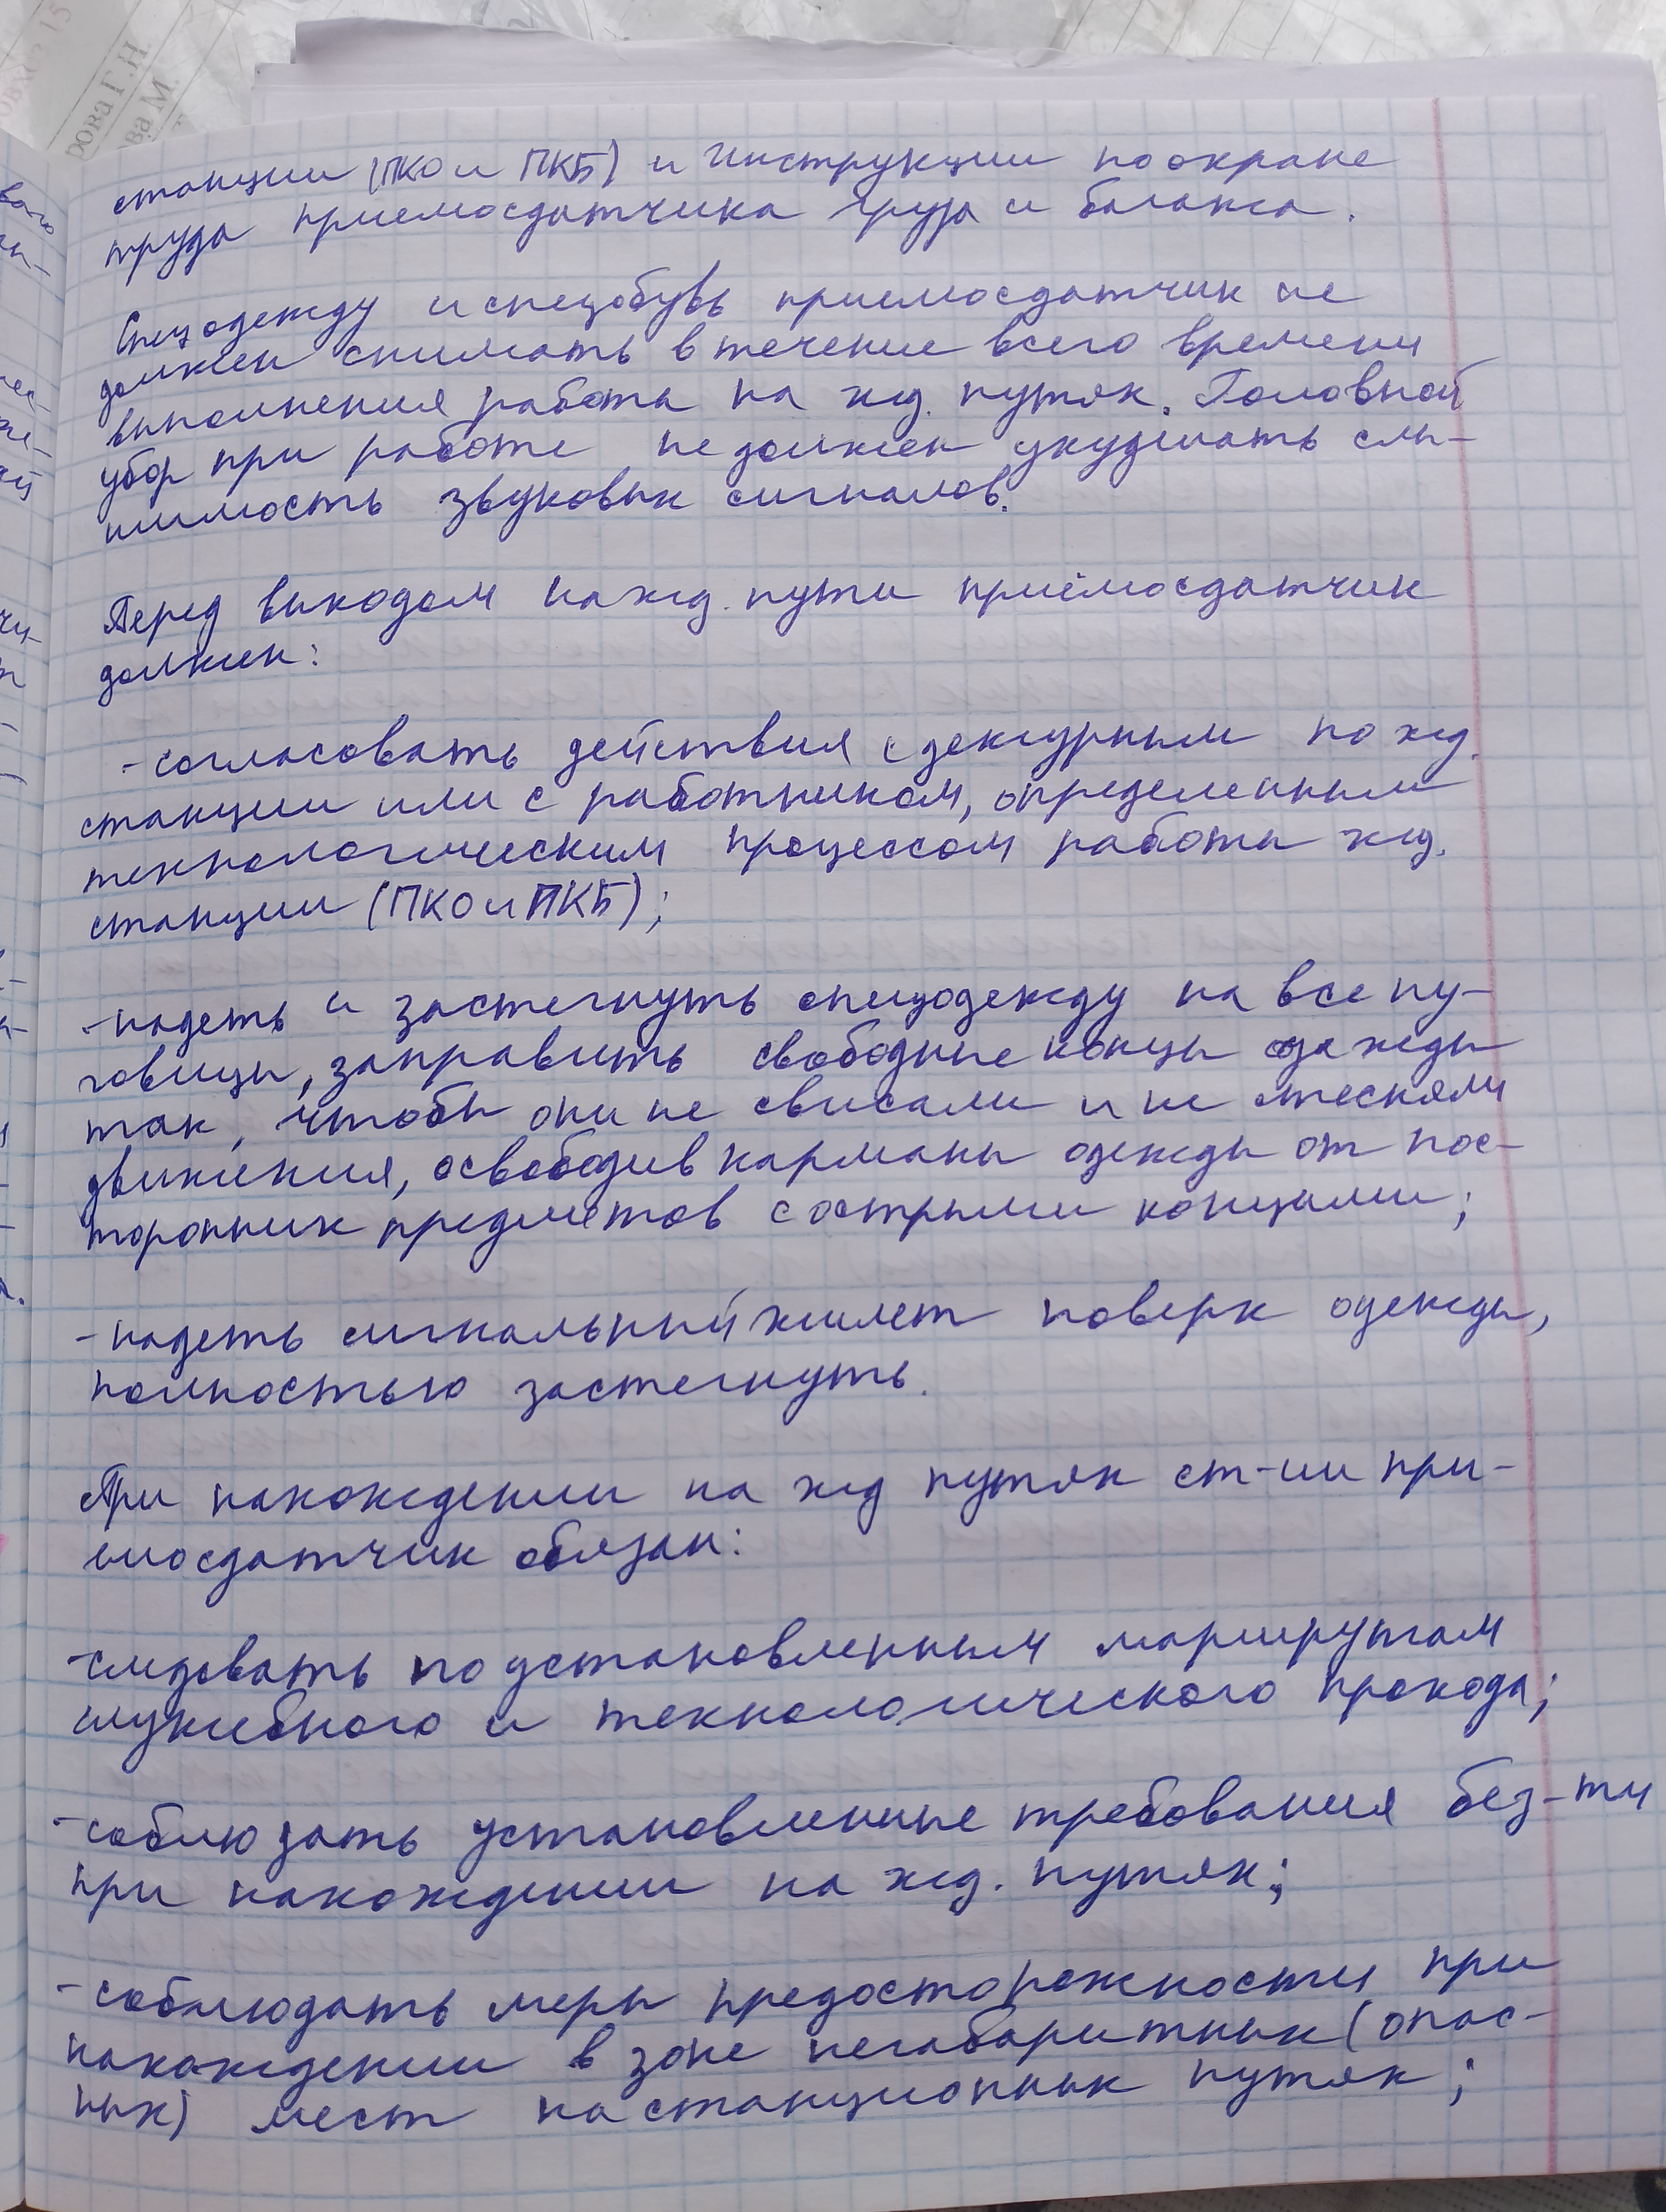 станции (ПКО и ПКБ) и Инструкции по охране
труда приемосдатчика груза и багажа.
Спецодежду и спецобувь приемосдатчик не
должен снимать в течение всего времени
выполнения работы на жд. путях. Головной
убор при работе не должен ухудшать слы-
шимость звуковых сигналов.
Перед выходом на жд. пути приёмосдатчик
должен:
-согласовать действия с дежурным по жд.
станции или с работником, определенным
технологическим процессом работы жд.
станции (ПКО и ПКБ);
-надеть и застегнуть спецодежду на все пу-
говицы, заправить свободные концы одежды
так, чтобы они не свисали и не стесняли
движения, освободив карманы одежды от пос-
торонних предметов с острыми концами;
-надеть сигнальный жилет поверх одежды,
полностью застегнуть.
При нахождении на жд путях ст-ии при-
мосдатчик обязан:
-следовать по установленным маршрутам
служебного и технологического прохода;
-соблюдать установленные требования без-ти
при нахождении на жд. путях;
-соблюдать меры предосторожности при
нахождении в зоне негабаритных (опас-
ных) мест на станционных путях;